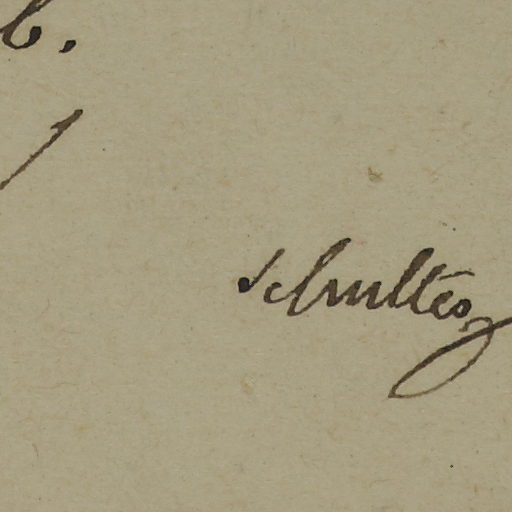 b.
schultes